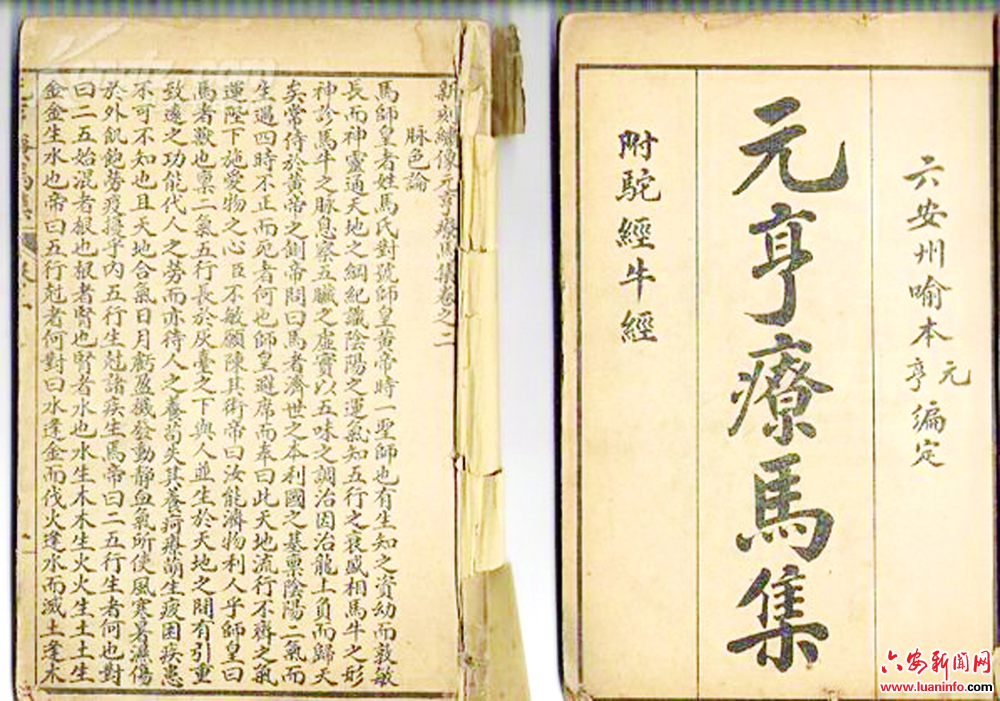 六安州喻本元亨編定
元亨療馬集
附駝經牛經
新刻繡像元亨療馬集卷之二
脉色論
馬師皇者姓馬氏對號師皇黃帝時一聖師也有生知之資幼而敦敏
長而神靈通天地之綱紀識陰陽之運氣知五行之衰盛相馬牛之形
神診馬牛之脉息察五臟之虛實以五味之調治因治龍上負而歸天
矣常侍於黃帝之側帝問曰馬者濟世之本利國之基稟陰陽二氣而
生遇四時不正而死者何也師皇避席而奉曰此天地流行不齊之氣
運陛下施愛物之心臣不敏願陳其術帝曰汝能濟物利人乎師皇曰
馬者獸也稟二氣五行長於灰臺之下與人並生於天地之間有引重
致遠之功能代人之勞而亦待人之養苟失其養疴瘵萌生疲困疾恙
不可不知也且天地合氣日月虧盈機發動靜血氣所使風寒暑濕傷
於外飢飽勞疫擾乎內五行生尅諸疾生焉帝曰二五行生者何也對
曰二五始混者根也根者腎也腎者水也水生木木生火火生土土生
金金生水也帝曰五行尅者何對曰水逢金而伐火逢水而滅土逢木
六安新闻网
www.luaninfo.com